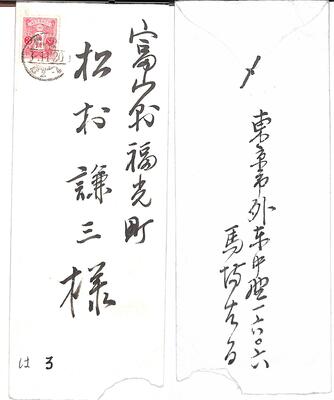 富山縣福光町
松村謙三様
はる
〆
東京市外東中野一六〇六
馬場